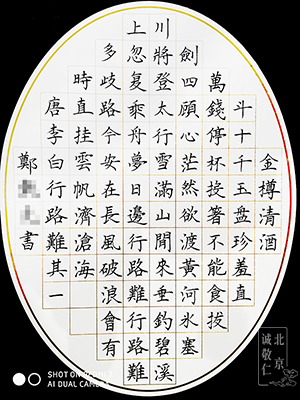 金樽清酒
斗十千玉盘珍羞直
萬錢停杯投箸不能食拔
劍四顧心茫然欲渡黃河冰塞
川將登太行雪滿山閒來垂釣碧溪
上忽复乘舟夢日邊行路難行路難
多歧路今安在長風破浪會有
時直挂雲帆濟滄海
唐李白行路難其一
鄭書
北京
诚敬仁
SHOT ON
AI DUAL CAMERA